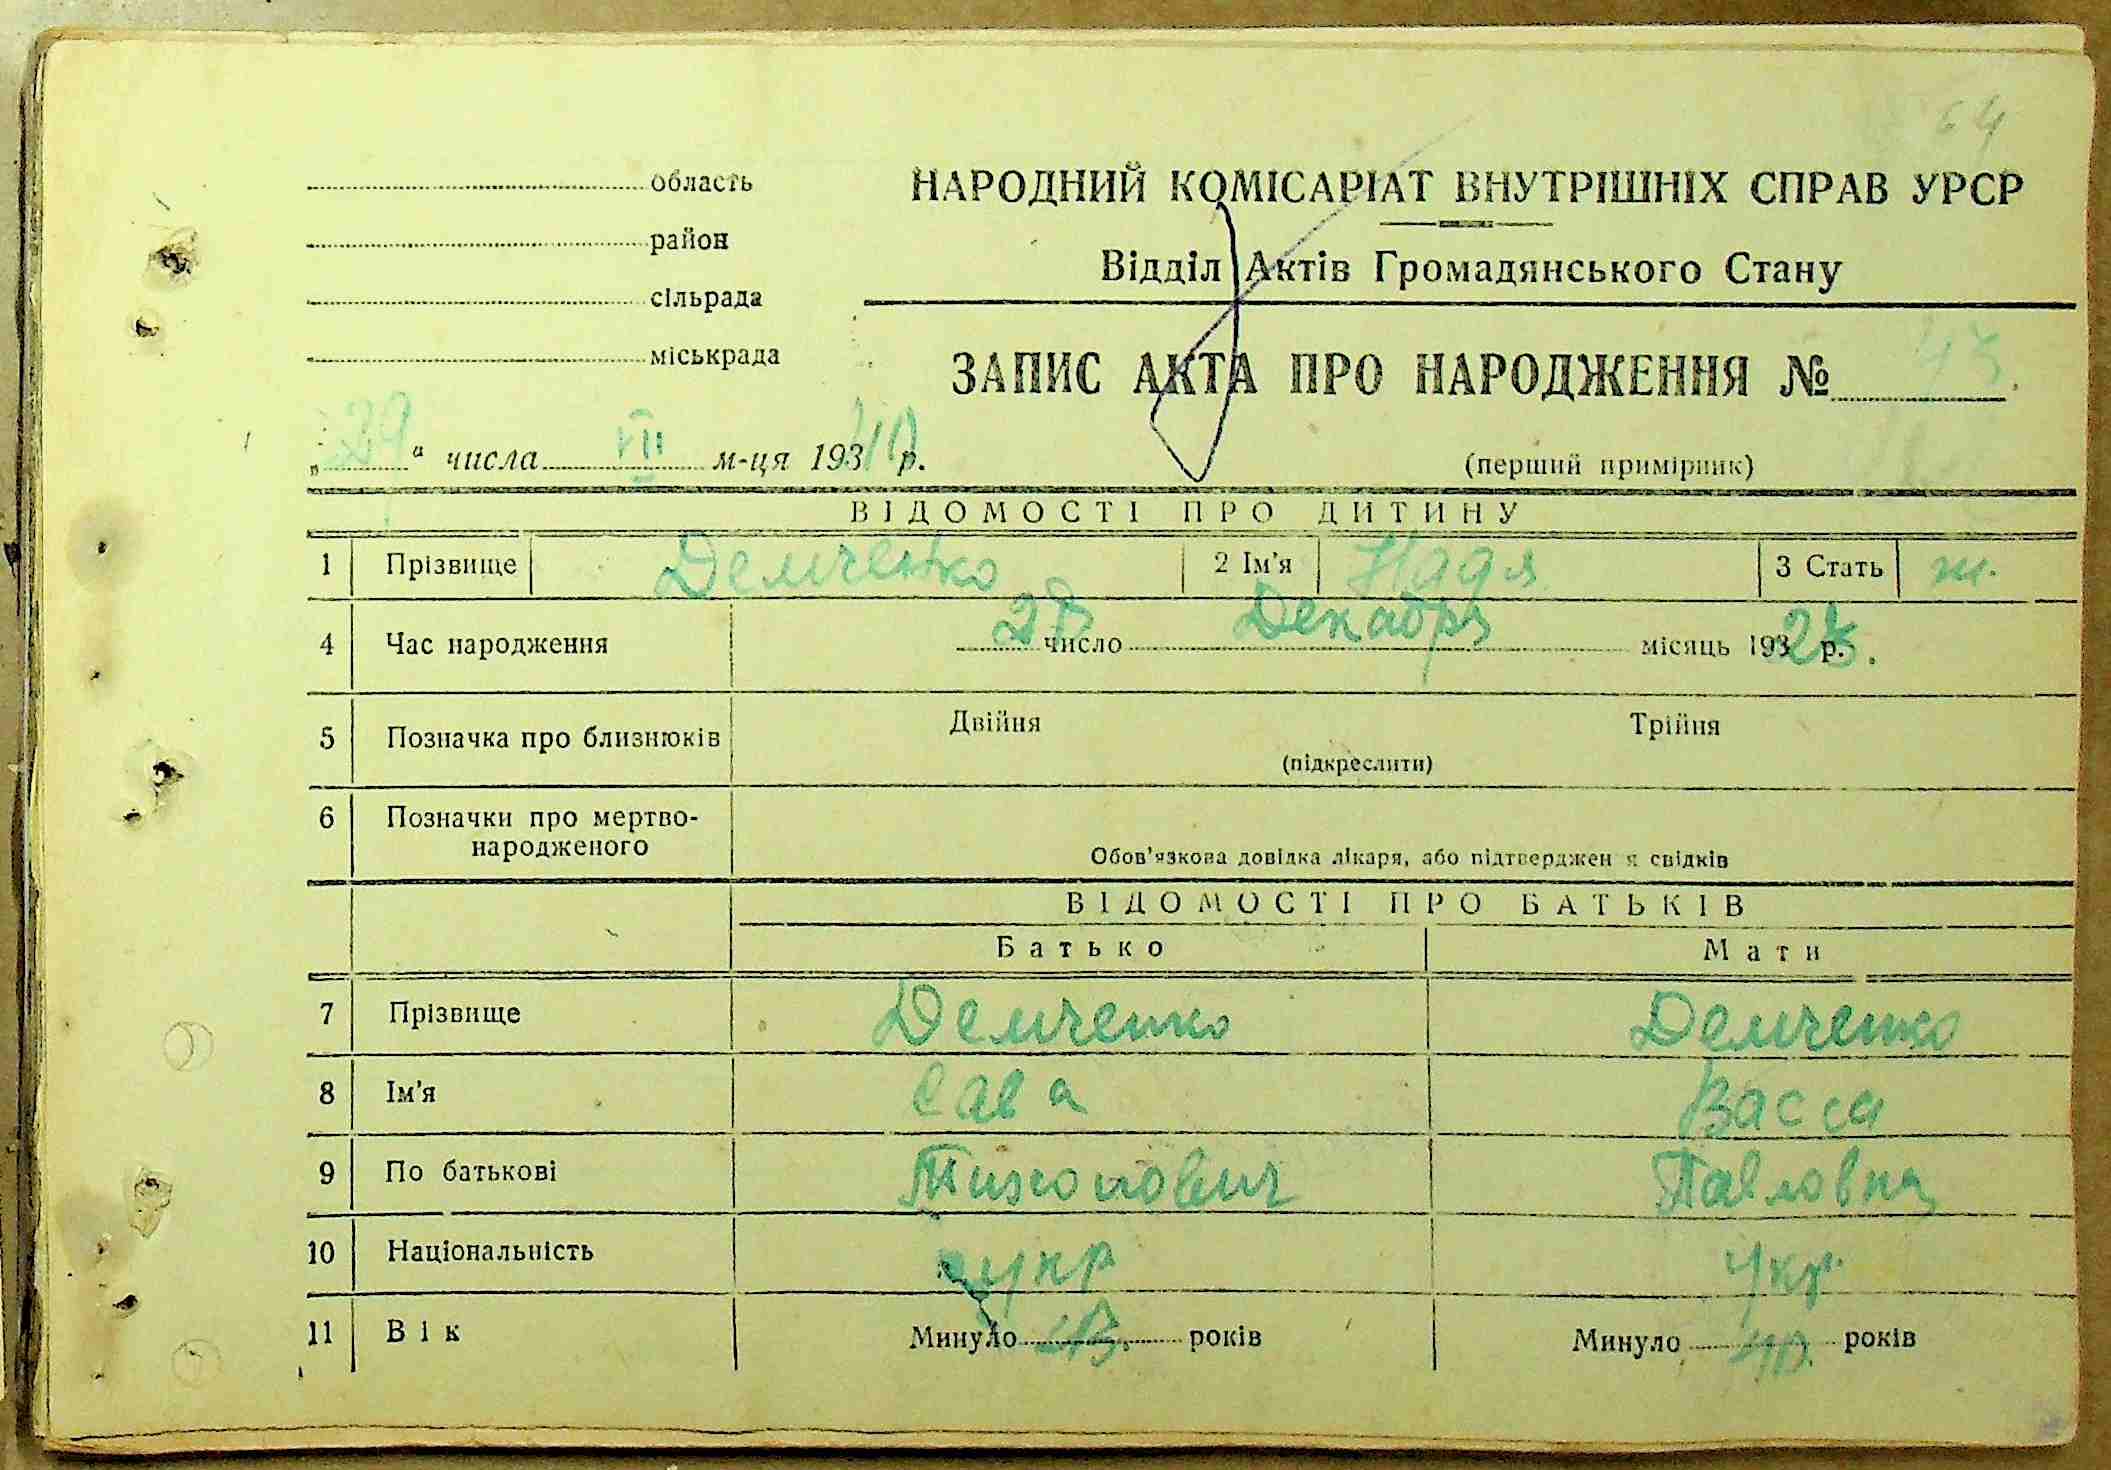 64
область
НАРОДНИЙ КОМІСАРІАТ ВНУТРІШНІХ СПРАВ УРСР
район
Відділ Актів Громадянського Стану
сільрада
міськрада
ЗАПИС АКТА ПРО НАРОДЖЕННЯ № 43
„29“ числа VII м-ця 19340 р.
(перший примірник)
ВІДОМОСТІ ПРО ДИТИНУ
1 Прізвище Демченко 2 Ім'я Надя 3 Стать ж.
4 Час народження 28 число Декабря місяць 193 р.
5 Позначка про близнюків Двійня Трійня
(підкреслити)
6 Позначки про мертво-
народженого
Обов'язкова довідка лікаря, або підтверджен я свідків
ВІДОМОСТІ ПРО БАТЬКІВ
Батько Мати
7 Прізвище Демченко Демченко
8 Ім'я Сава Васса
9 По батькові Тихонович Павловна
10 Національність укр Укр.
11 Вік Минуло років Минуло 40. років